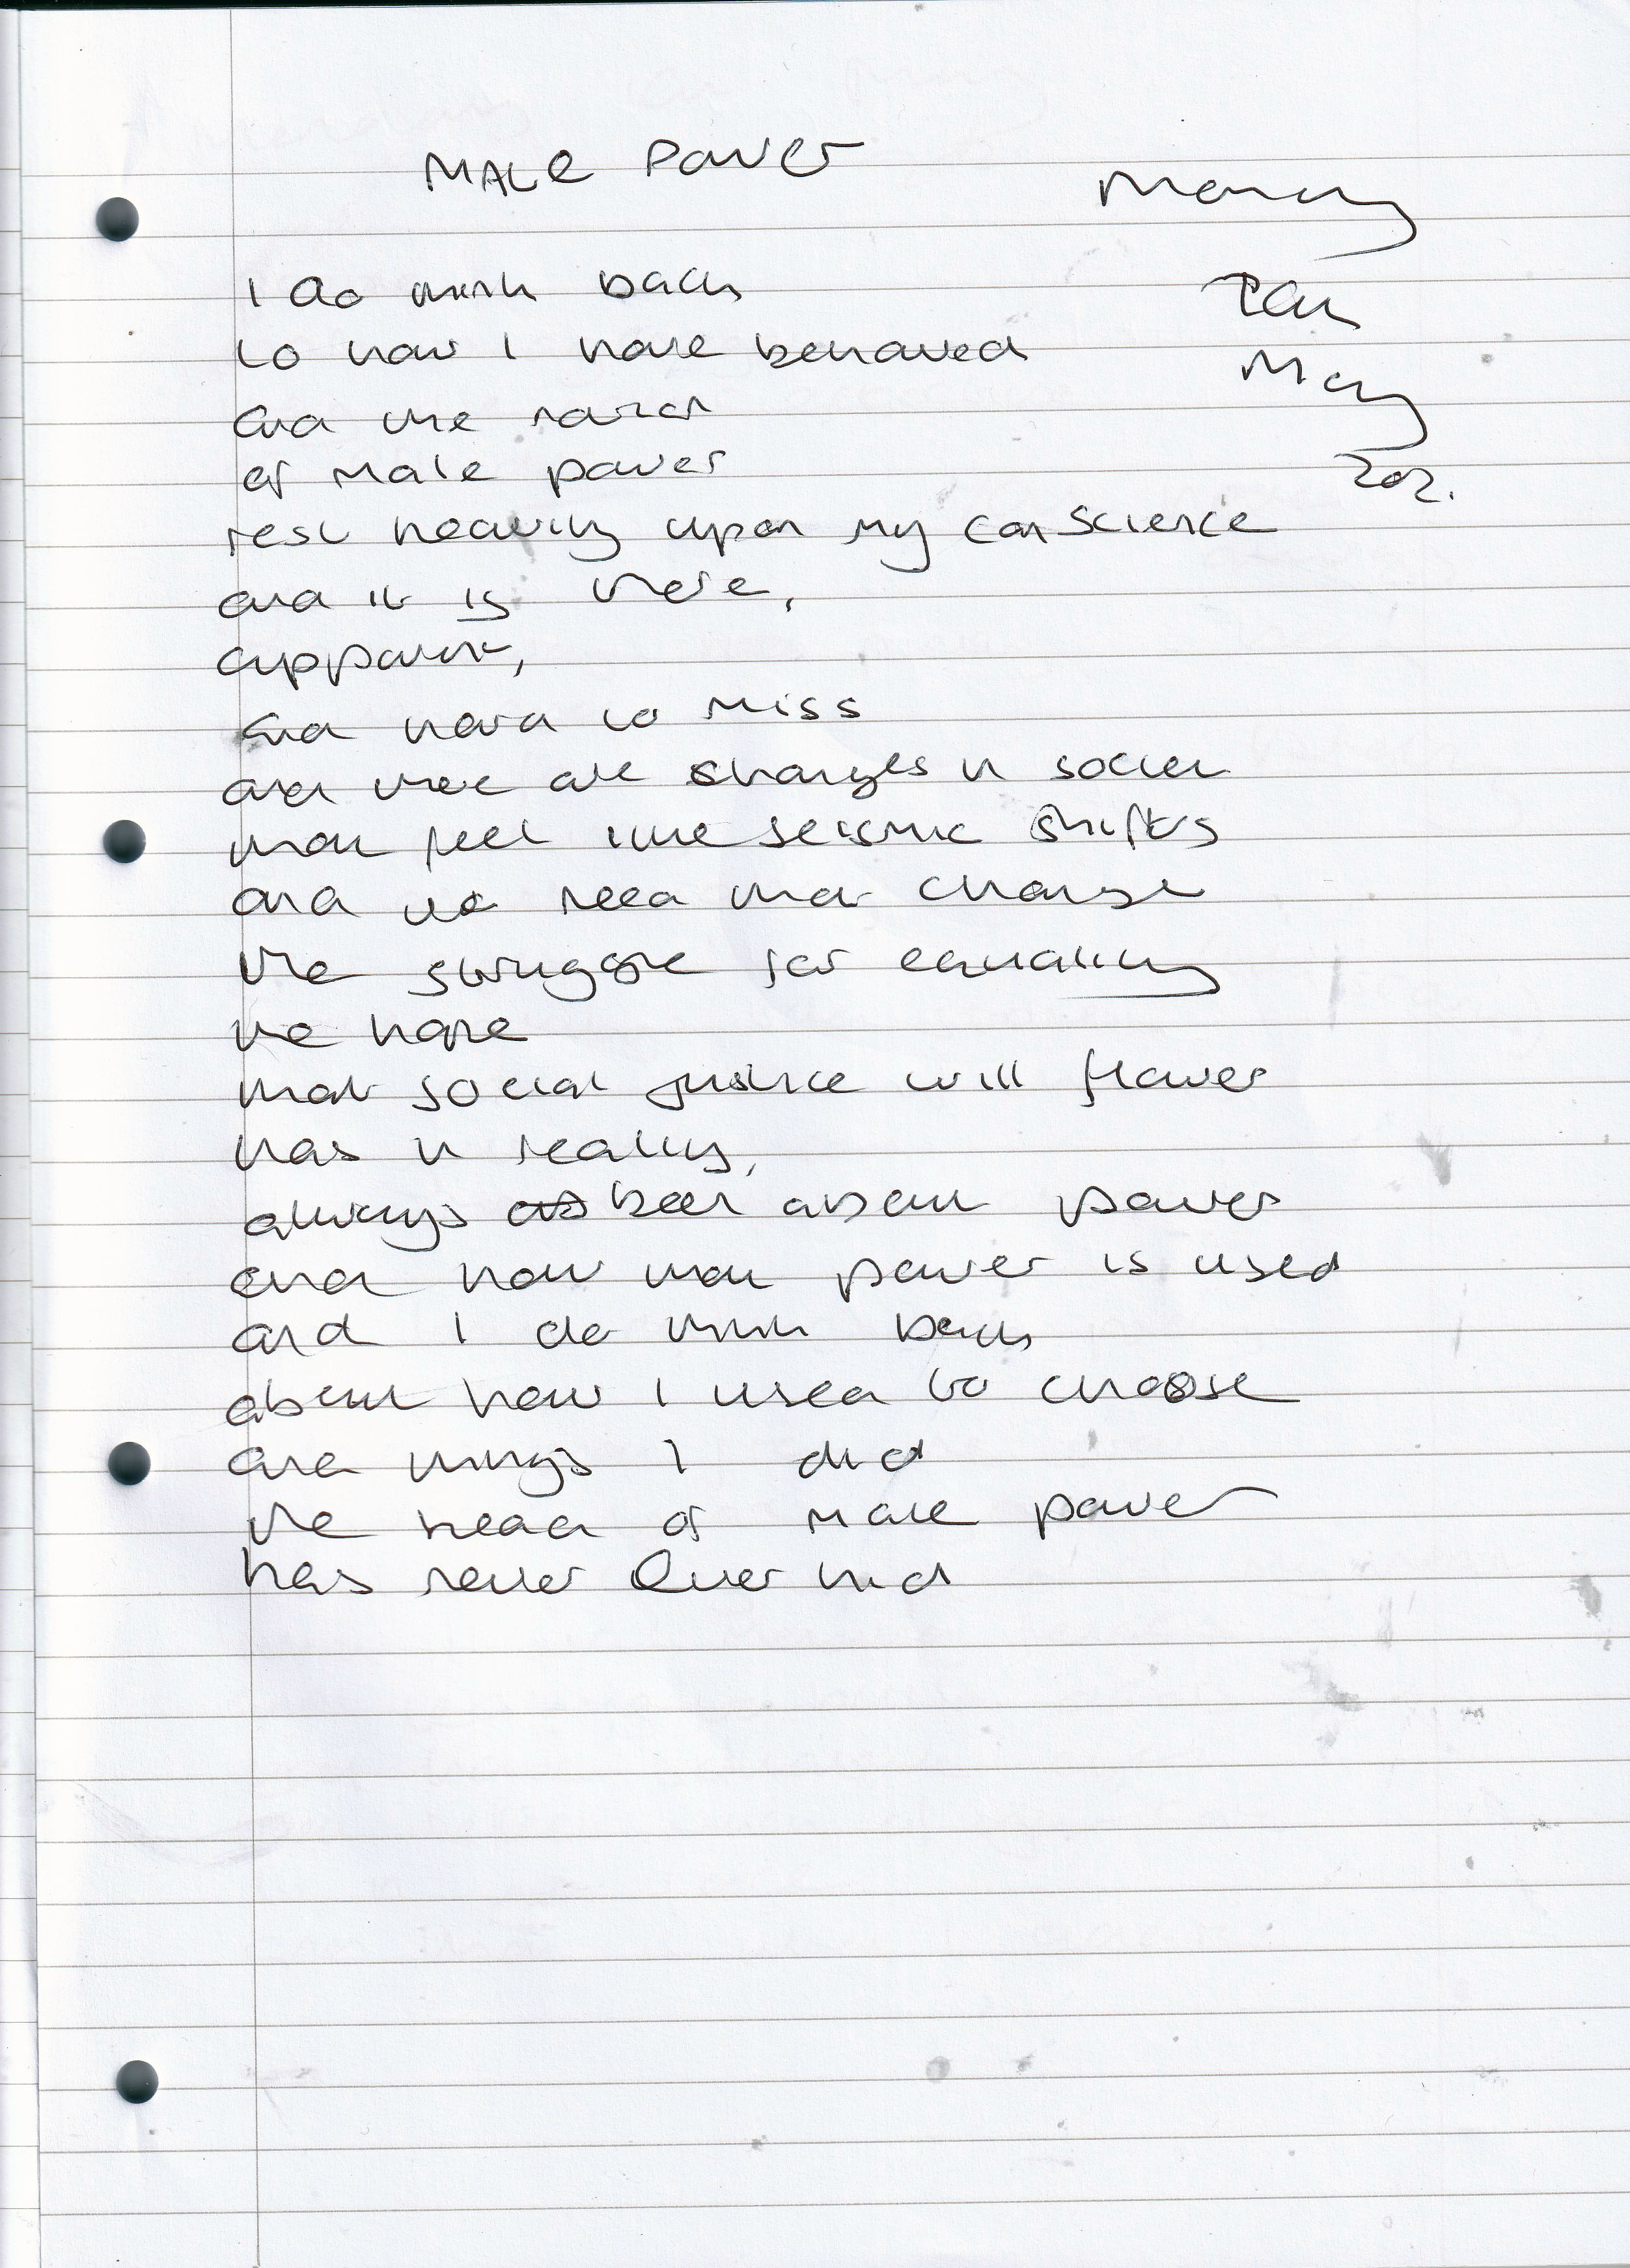 MALE POWER
Monday
10th
May
202.
I do think back
to how I have behaved
and the notion
of male power
rest heavily upon my conscience
and it is there,
apparent,
and hard to miss
and there are changes in society
that feel like seismic shifts
and we need that change
the struggle for equality
we hope
that social justice will flower
has in reality,
always been about power
and how that power is used
and I do think back
about how I used to choose
and things I did
the head of male power
has never been hid